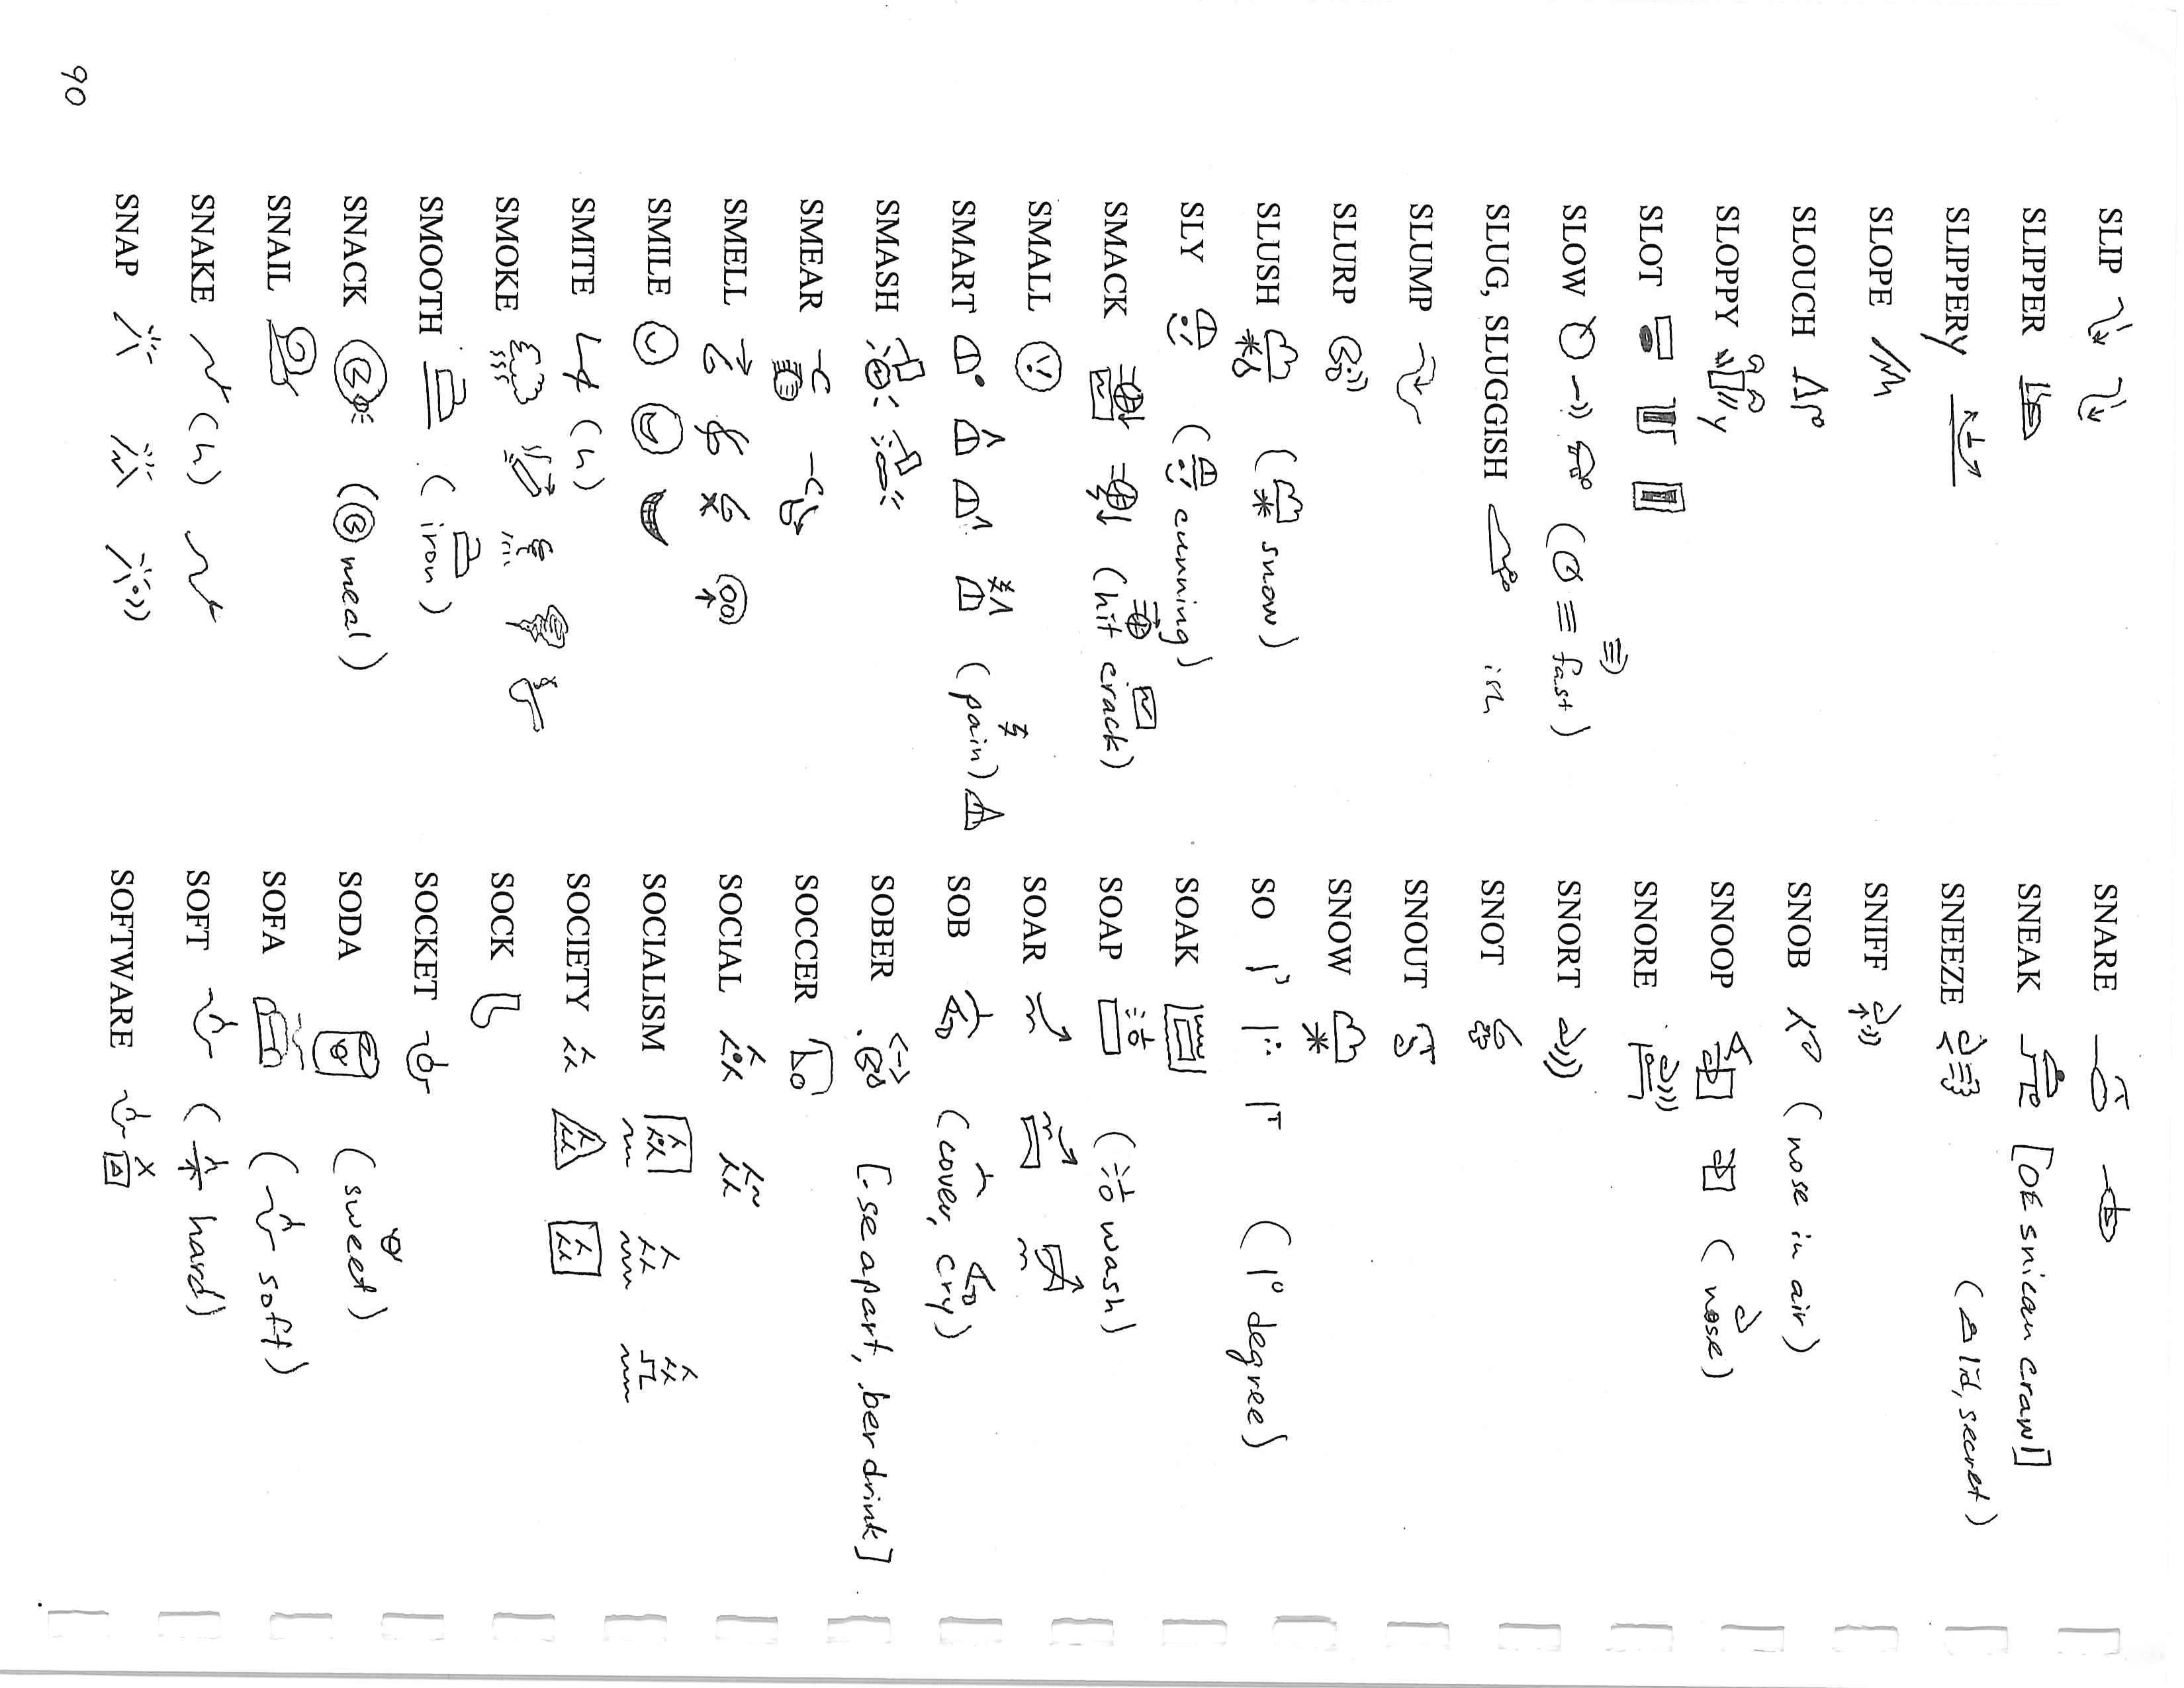 SLIP
SLIPPER
SLIPPERY
SLOPE
SLOUCH
SLOPPY
SLOT
SLOW ( fast )
SLUG, SLUGGISH ish
SLUMP
SLURP
SLUSH ( snow )
SLY ( cunning )
SMACK ( hit crack )
SMALL
SMART ( pain )
SMASH
SMEAR
SMELL
SMILE
SMITE (h)
SMOKE
SMOOTH ( iron )
SNACK ( meal )
SNAIL
SNAKE (h)
SNAP
SNARE
SNEAK [OE snican crawl]
SNEEZE ( lid, secret )
SNIFF
SNOB ( nose in air )
SNOOP ( nose )
SNORE
SNORT
SNOT
SNOUT
SNOW
SO ( 1° degree )
SOAK
SOAP ( wash )
SOAR
SOB ( cover, cry )
SOBER [-se apart, ber drink]
SOCCER
SOCIAL
SOCIALISM
SOCIETY
SOCK
SOCKET
SODA ( sweet )
SOFA ( soft )
SOFT ( hard )
SOFTWARE
90